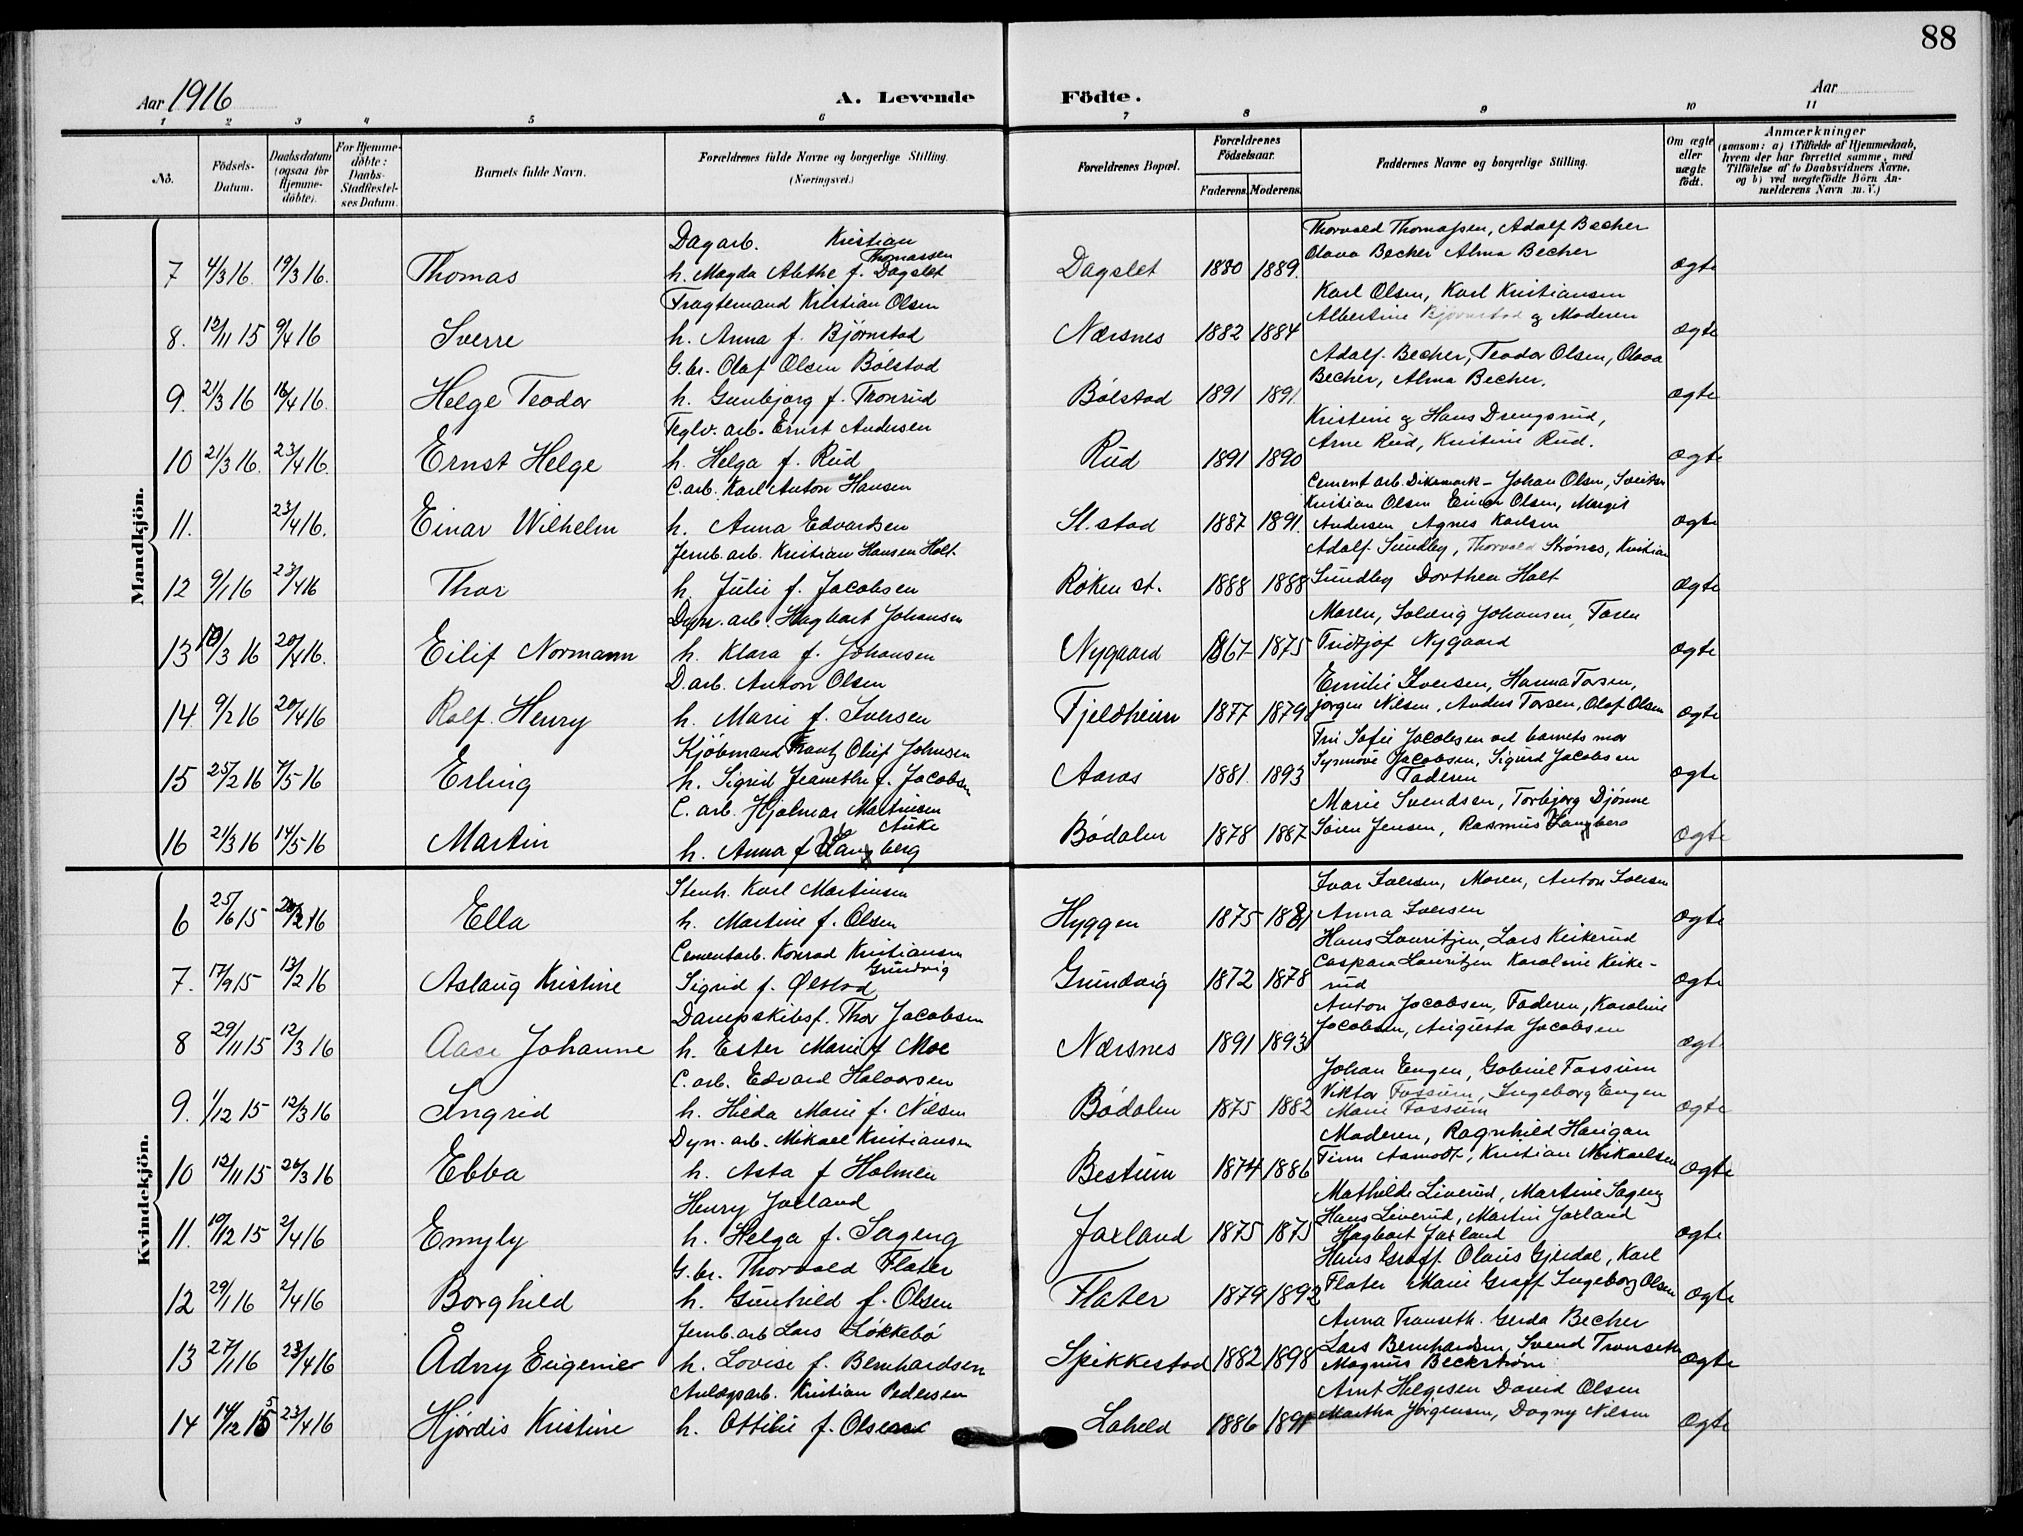 88
Aar 1916
A. Levende Födte.
Aar
1 2 3 4 5 6 7 8 9 10 11
No.
Födsels-Datum.
Daabsdatum (ogsaa for Hjemme-döbte).
For Hjemme-döbte: Daabs-Stadfæstel-ses Datum.
Barnets fulde Navn.
Forældrenes fulde Navne og borgerlige Stilling. (Næringsvei.)
Forældrenes Bopæl.
Forældrenes Födselsaar.
Faderens. Moderens.
Faddernes Navne og borgerlige Stilling.
Om ægte eller uægte födt.
Anmærkninger (saasom: a) i Tilfælde af Hjemmedaab, hvem der har forrettet samme, med Tilföielse af to Daabsvidners Navne, og b) ved uægtefödte Börn An-melderens Navn m. V.)
Mandkjön.
Dagarb. Kristian Thomassen
Thorvald Thomassen, Adolf Becher
7 4/3 16. 19/3 16. Thomas h. Magda Alethe f. Dagslet Dagslet 1880 1889. Olava Becher Alma Becher ægte
Fragtemand Kristian Olsen
Karl Olsen, Karl Kristiansen
8. 12/11 15 9/4 16 Sverre h. Anna f. Bjørnstad Nærsnes 1882 1884 Albertine Bjørnstad og Moderen ægte
G.br. Olaf Olsen Bölstad
Adolf Becher, Teodor Olsen, Olava
9. 21/3 16 16/4 16. Helge Teodor h. Gunbjørg f. Tronrud Bölstad 1891 1891. Becher, Alma Becher. ægte
Teglv. arb. Ernst Andersen
Kristine og Hans Drengsrud,
10 21/3 16. 23/4 16. Ernst Helge h. Helga f. Rud Rud 1891 1890 Arne Rud, Kristine Rud. ægte
C. arb. Karl Anton Hansen
Cement arb. Dikemark - Johan Olsen,
Kristian Olsen Einar Olsen, Margit
11. 23/4 16. Einar Wilhelm h. Anna Edvardsen St. stad 1887 1891. Andersen, Agnes Karlsen ægte
Jernb. arb. Kristian Hansen Holt
Adolf Sundby, Thorvald Strönes, Kristian
12 9/1 16 23/4 16 Thor h. Julie f. Jacobsen Röken st. 1888 1888 Sundby Dorthea Holt ægte
Dyn. arb. Hagbart Johansen
Maren, Solveig Johansen,
13 10/3 16 20/4 16. Eilif Normann h. Klara f. Johansen Nygaard 1867 1875 Fridtjof Nygaard ægte
D. arb. Anton Olsen
Emilie Iversen, Hanna Torsen,
14. 9/2 16 20/4 16 Rolf Henry h. Marie f. Iversen Fjeldheim 1877 1879 Jørgen Nilsen, Anders Torsen, Olaf Olsen ægte
Kjöbmand Frantz Oluf Johnsen
Fru Sofie Jacobsen ved barnets mor
15 25/2 16 7/5 16 Erling h. Sigrid Jeanette f. Jacobsen Aaros 1881. 1893 Synnöve Jacobsen, Sigurd Jacobsen Faderen ægte
C. arb. Hjalmar Martinsen
Marie Svendsen, Torbjørg Djönne
16 21/3 16 14/5 16 Martin h. Anna f Langberg Bödalen 1878 1887 Sören Jensen, Rasmus Langberg ægte
Kvindekjön.
Stenh. Karl Martinsen
Ivar Iversen, Maren, Anton Iversen
6 25/6 15 2 16 Ella h. Martine f. Olsen Hyggen 1875 1881 Anna Iversen ægte
Cementarb. Konrad Kristiansen Grundvig
Hans Lauritzen, Lars Kirkerud
7. 17/9 15 13/2 16 Aslaug Kristine Sigrid f. Ølstad Grundvig 1872 1878 Caspara Lauritzen Karoline Kirke-rud ægte
Dampskibsf. Thor Jacobsen
Anton Jacobsen, Faderen, Karoline
8 29/11 15 12/3 16 Aase Johanne h. Ester Marie f Moe Nærsnes 1891 1893 Jacobsen, Augusta Jacobsen ægt
C. arb. Edvard Halvorsen
Johan Engen, Gabriel Fossum
9. 1/12 15 12/3 16 Ingrid h. Hilda Marie f. Nilsen Bödalen 1875 1882 Viktor Fossum, Ingeborg Engen Marie Fossum ægte
Dyn. arb. Mikael Kristiansen
Moderen, Ragnhild Haugan
10 12/11 15 26/3 16 Ebba h. Asta f Holmen Bestum 1874 1886 Finn Aamodt, Kristian Mikaelsen ægte
Henry Jaxland
Mathilde Liverud, Martine Sageng
Hans Liverud, Martin Jaxland
11. 19/12 15 2/4 16 Emyly h. Helga f. Sageng Jaxland 1875 1875 Hagbart Jaxland ægte
G. br. Thorvald Flater
Hans Graff. Olaus Gjerdal, Karl
12 29/1 16 2/4 16 Borghild h. Gunhild f. Olsen Flater 1879 1892 Flater Marie Graff Ingeborg Olsen ægte
Jernb. arb Lars Løkkebö
Anna Transeth. Gerda Becher
Lars Bernhardsen, Svend Transeth
13 27/1 16 23/4 16 Ådny Eugenie h. Lovise f. Bernhardsen Spikkestad 1882 1898 Magnus Beckström ægte
Anlægsarb. Kristian Pedersen
Arnt Helgesen David Olsen
14 14/12 15 23/4 16 Hjördis Kristine h. Ottilie f. Olsen Laheld 1886 Martha Jörgensen, Dagny Nilsen ægte